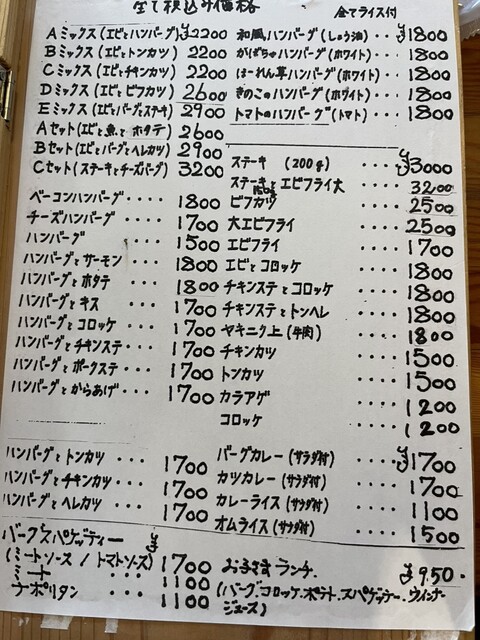 全て税込み価格
全てライス付
Aミックス(エビとハンバーグ)¥2200
Bミックス(エビとトンカツ) 2200
Cミックス(エビとチキンカツ) 2200
Dミックス(エビとビフカツ) 2600
Eミックス(エビとバーグとステーキ) 2900
Aセット(エビと魚とホタテ) 2600
Bセット(エビとバーグとヘレカツ) 2900
Cセット(ステーキとチーズバーグ) 3200
ベーコンハンバーグ・・・・ 1800
チーズハンバーグ・・・・ 1700
ハンバーグ・・・ 1500
ハンバーグとサーモン・・・ 1800
ハンバーグとホタテ・・・ 1800
ハンバーグとキス・・・ 1700
ハンバーグとコロッケ・・・ 1700
ハンバーグとチキンステ・・・ 1700
ハンバーグとポークステ・・・ 1700
ハンバーグとからあげ・・・ 1700
ハンバーグとトンカツ・・・ 1700
ハンバーグとチキンカツ・・・ 1700
ハンバーグとヘレカツ・・・ 1700
和風ハンバーグ(しょう油)・・・¥1800
かぼちゃハンバーグ(ホワイト)・・・・1800
ほーれん草ハンバーグ(ホワイト)・・・・1800
きのこのハンバーグ(ホワイト)・・・・1800
トマトのハンバーグ(トマト)・・・・1800
ステーキ (200g) ・・・・¥3000
ステーキとエビフライ大 3200
150g
ビフカツ ・・・・2500
大エビフライ ・・・・2500
エビフライ ・・・・1700
エビとコロッケ ・・・・1800
チキンステとコロッケ ・・・・1800
チキンステとトンヘレ ・・・・1800
ヤキニク上(牛肉) ・・・・1800
チキンカツ ・・・・1500
トンカツ ・・・・1500
カラアゲ ・・・・1200
コロッケ ・・・・1200
バーグカレー(サラダ付)・・・・¥1700
カツカレー(サラダ付)・・・・1700
カレーライス(サラダ付)・・・・1100
オムライス(サラダ付)・・・・1500
バーグスパゲッティー
(ミートソース/トマトソース) 1700
ミート ・・・ 1100
ナポリタン ・・・ 1100
お子さまランチ. ¥950.
(バーグ.コロッケ.ポテト.スパゲッテー.ウインナー
ジュース)